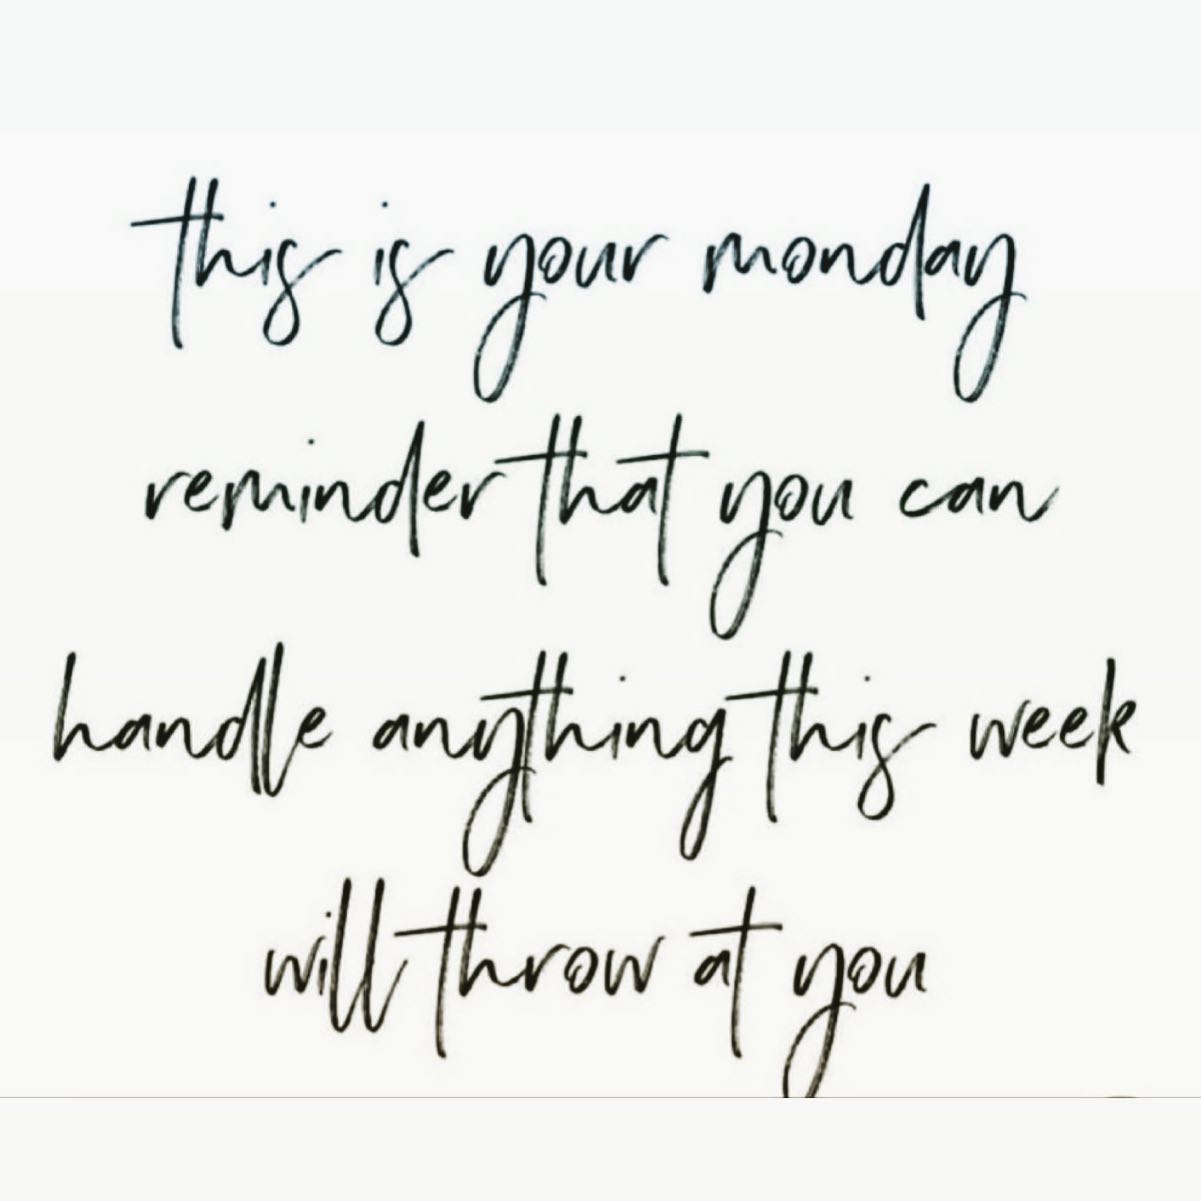 this is your monday
reminder that you can
handle anything this week
will throw at you